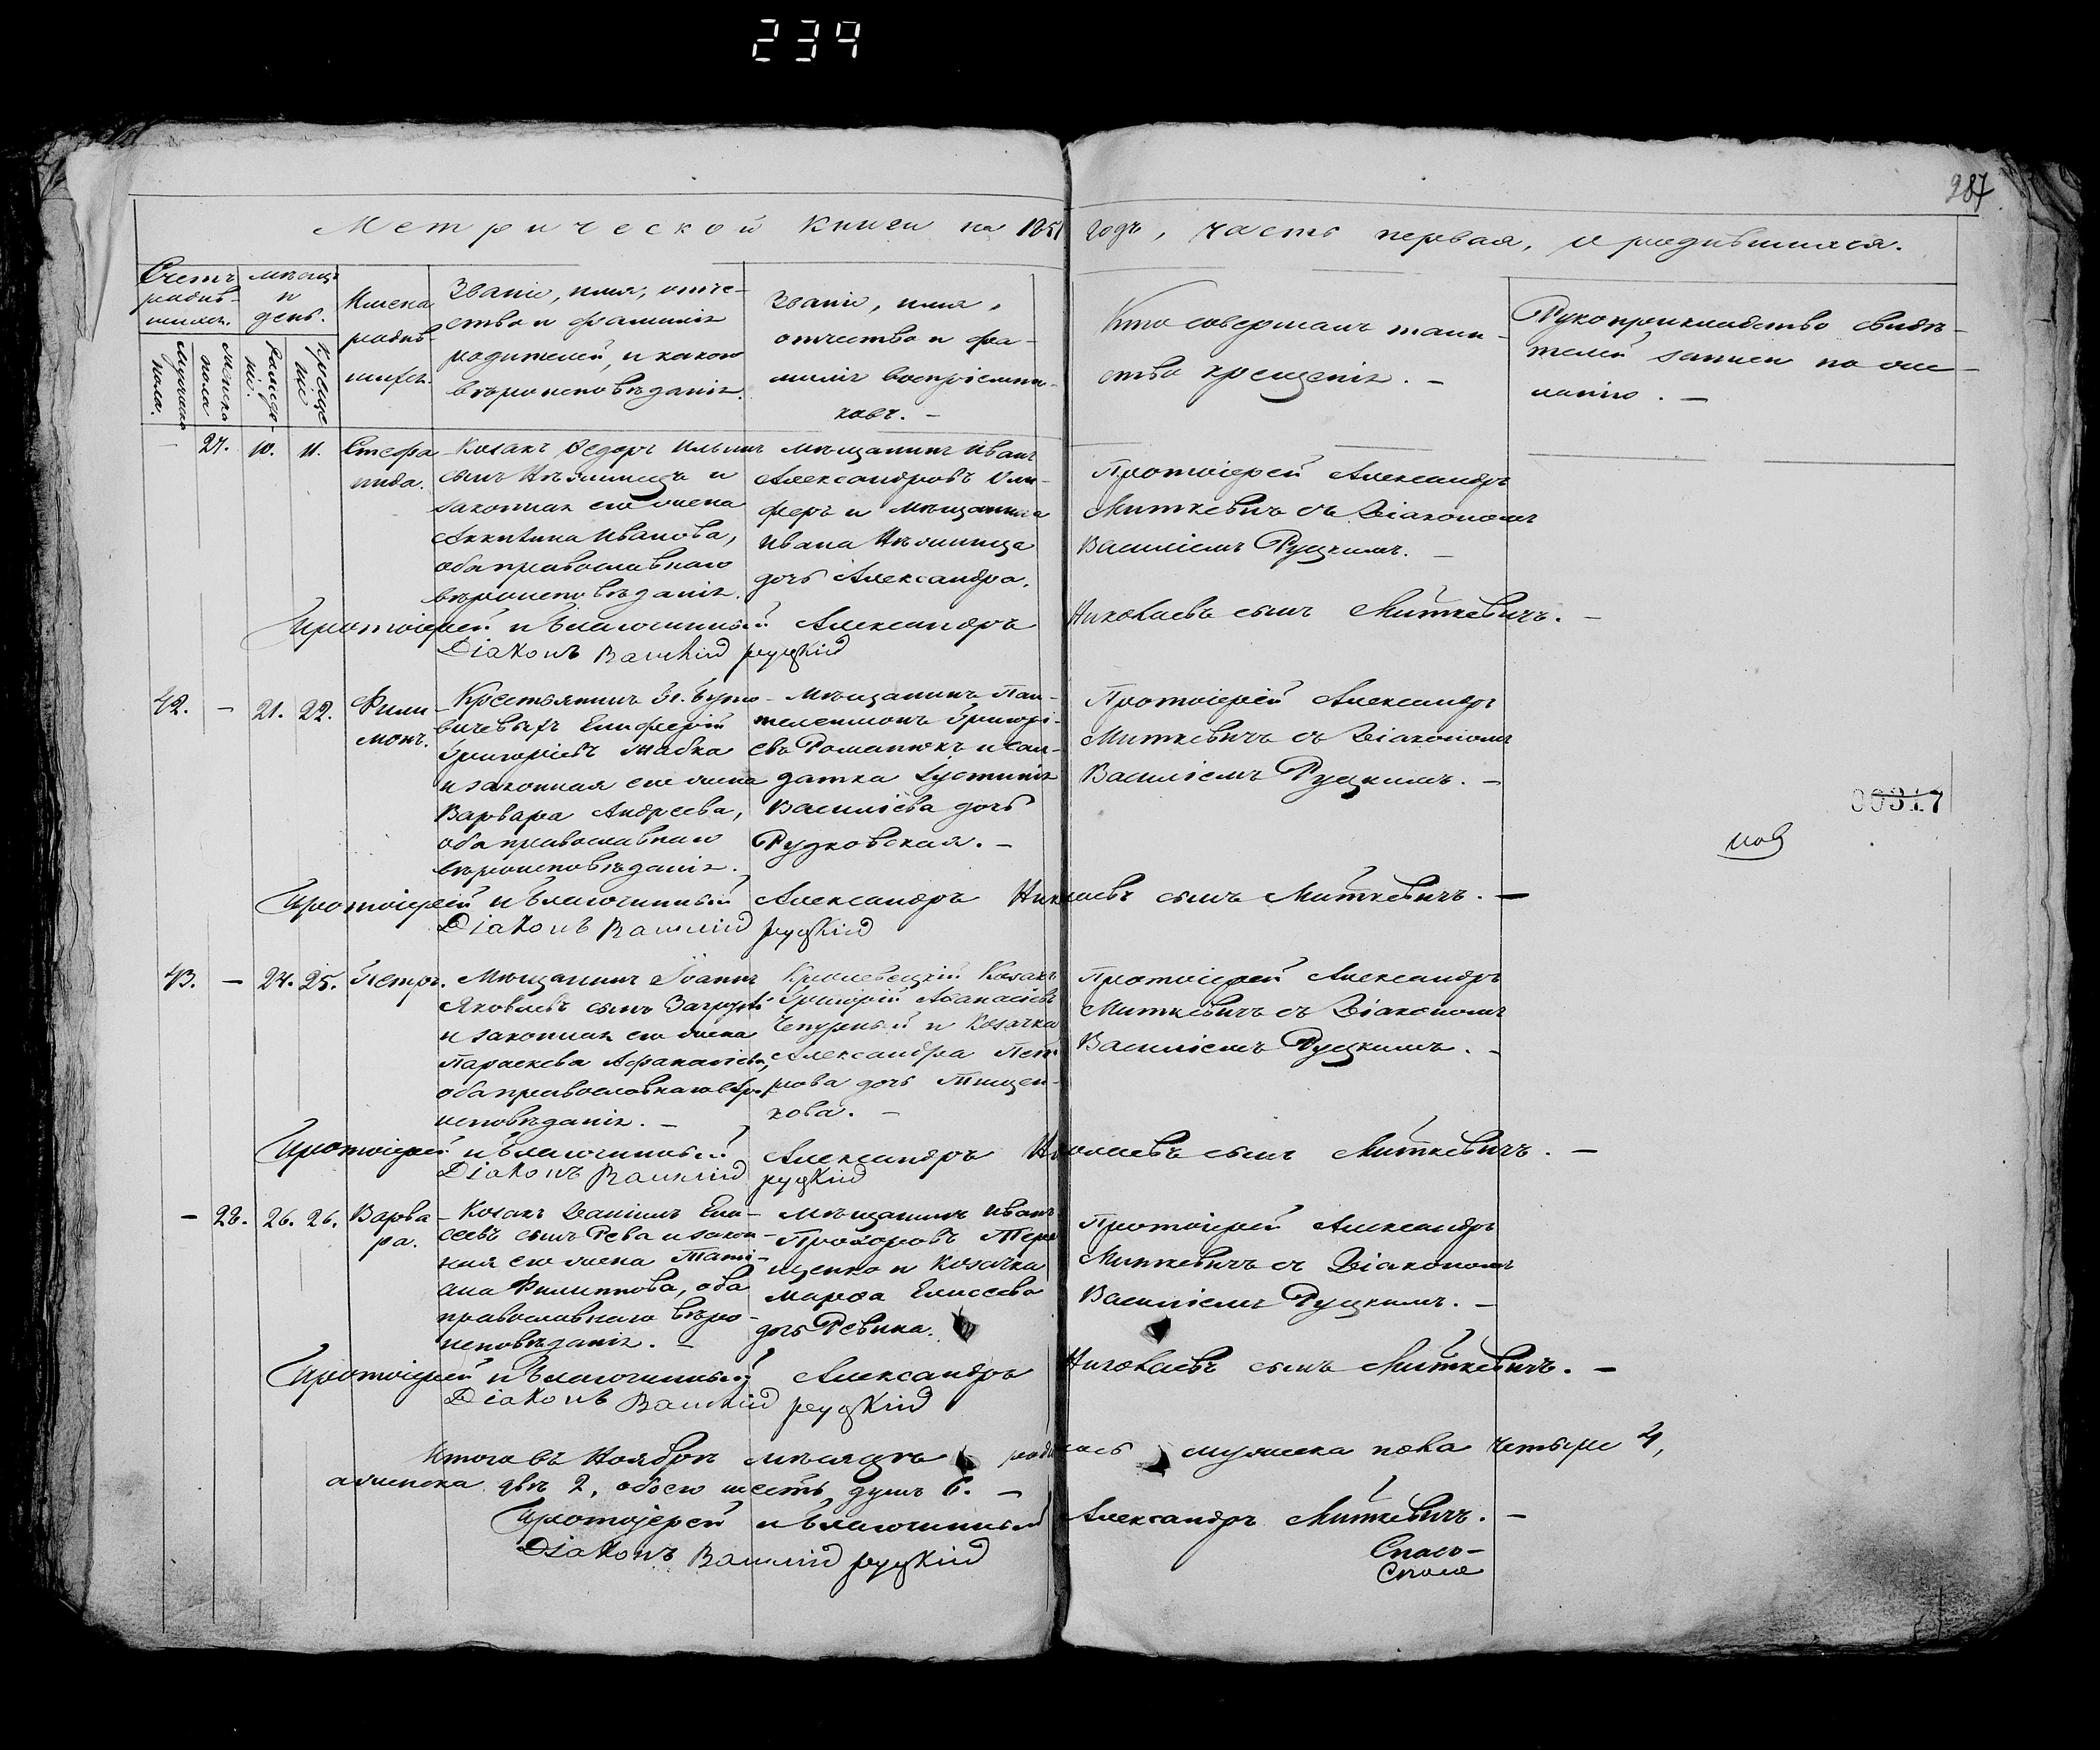 239
287
Метрической книги на 1851 годъ, часть первая, о родившихся.
Счетъ родив-
шихся.
Мѣсяцъ
и
день.
Имена
родив-
шихся.
Званіе, имя, отче-
ство и фамилія
родителей, и какого
вѣроисповѣданія.
Званіе, имя,
отчество и фа-
милія воспріемни-
ковъ. –
Кто совершалъ таин-
ство крещенія. –
Рукоприкладство свидѣ-
телей записи по же-
ланію. –
Мужеска
пола.
Женска
пола
Рожде-
нія.
Креще
нія
– 27. 10. 11. Стефа
нида.
Козакъ Ѳедоръ Ильинъ
сынъ Нѣжинецъ и
законная его жена
Акилина Иванова,
оба православнаго
вѣроисповѣданія.
Мѣщанинъ Иванъ
Александровъ Оли-
феръ и мѣщанина
Ивана Нѣжинца
дочь Александра.
Протоіерей Александръ
Миткевичъ съ Діакономъ
Василіемъ Руцкимъ. –
Протоіерей и Благочинный Александръ Николаевъ сынъ Миткевичъ. –
Діаконъ Василій Руцкій
42. – 21. 22. Фили
монъ.
Крестьянинъ
Елиферій
Григоріевъ Жабка
и законная его жена
Варвара Андреева,
оба православнаго
вѣроисповѣданія.
Мѣщанинъ Пан-
телеимонъ Григорі-
евъ Романюкъ и сол-
датка Іустинія
Василіева дочь
Рудковская. –
Протоіерей Александръ
Миткевичъ съ Діакономъ
Василіемъ Руцкимъ. –
00317
Протоіерей и Благочинный Александръ Николаевъ сынъ Миткевичъ. –
Діаконъ Василій Руцкій
43. – 24. 25. Петръ.
Мѣщанинъ Іоаннъ
Яковлевъ сынъ
и законная его жена
Параскева Афанасіева,
оба православнаго вѣро-
исповѣданія. –
Кролевецкій Козакъ
Григорій Афанасіевъ
Чепурный и Козачка
Александра Пет-
рова дочь Тищен-
кова. –
Протоіерей Александръ
Миткевичъ съ Діакономъ
Василіемъ Руцкимъ. –
Протоіерей и Благочинный Александръ Николаевъ сынъ Миткевичъ. –
Діаконъ Василій Руцкій
– 28. 26. 26. Варва
ра.
Козакъ Даніилъ Ели-
сеевъ сынъ Рева и закон-
ная его жена Тати-
ана Филиппова, оба
православнаго вѣро-
исповѣданія. –
Мѣщанинъ Иванъ
Прохоровъ Тере
щенко и Козачка
Марѳа Елисеева
дочь Ревина.
Протоіерей Александръ
Миткевичъ съ Діакономъ
Василіемъ Руцкимъ. –
Протоіерей и Благочинный Александръ Николаевъ сынъ Миткевичъ. –
Діаконъ Василій Руцкій
Итого въ Ноябрѣ мѣсяцѣ родилось мужеска пола четыре 4,
а женска двѣ 2, обоего шесть душъ 6. –
Протоіерей и Благочинный Александръ Миткевичъ. –
Діаконъ Василій Руцкій